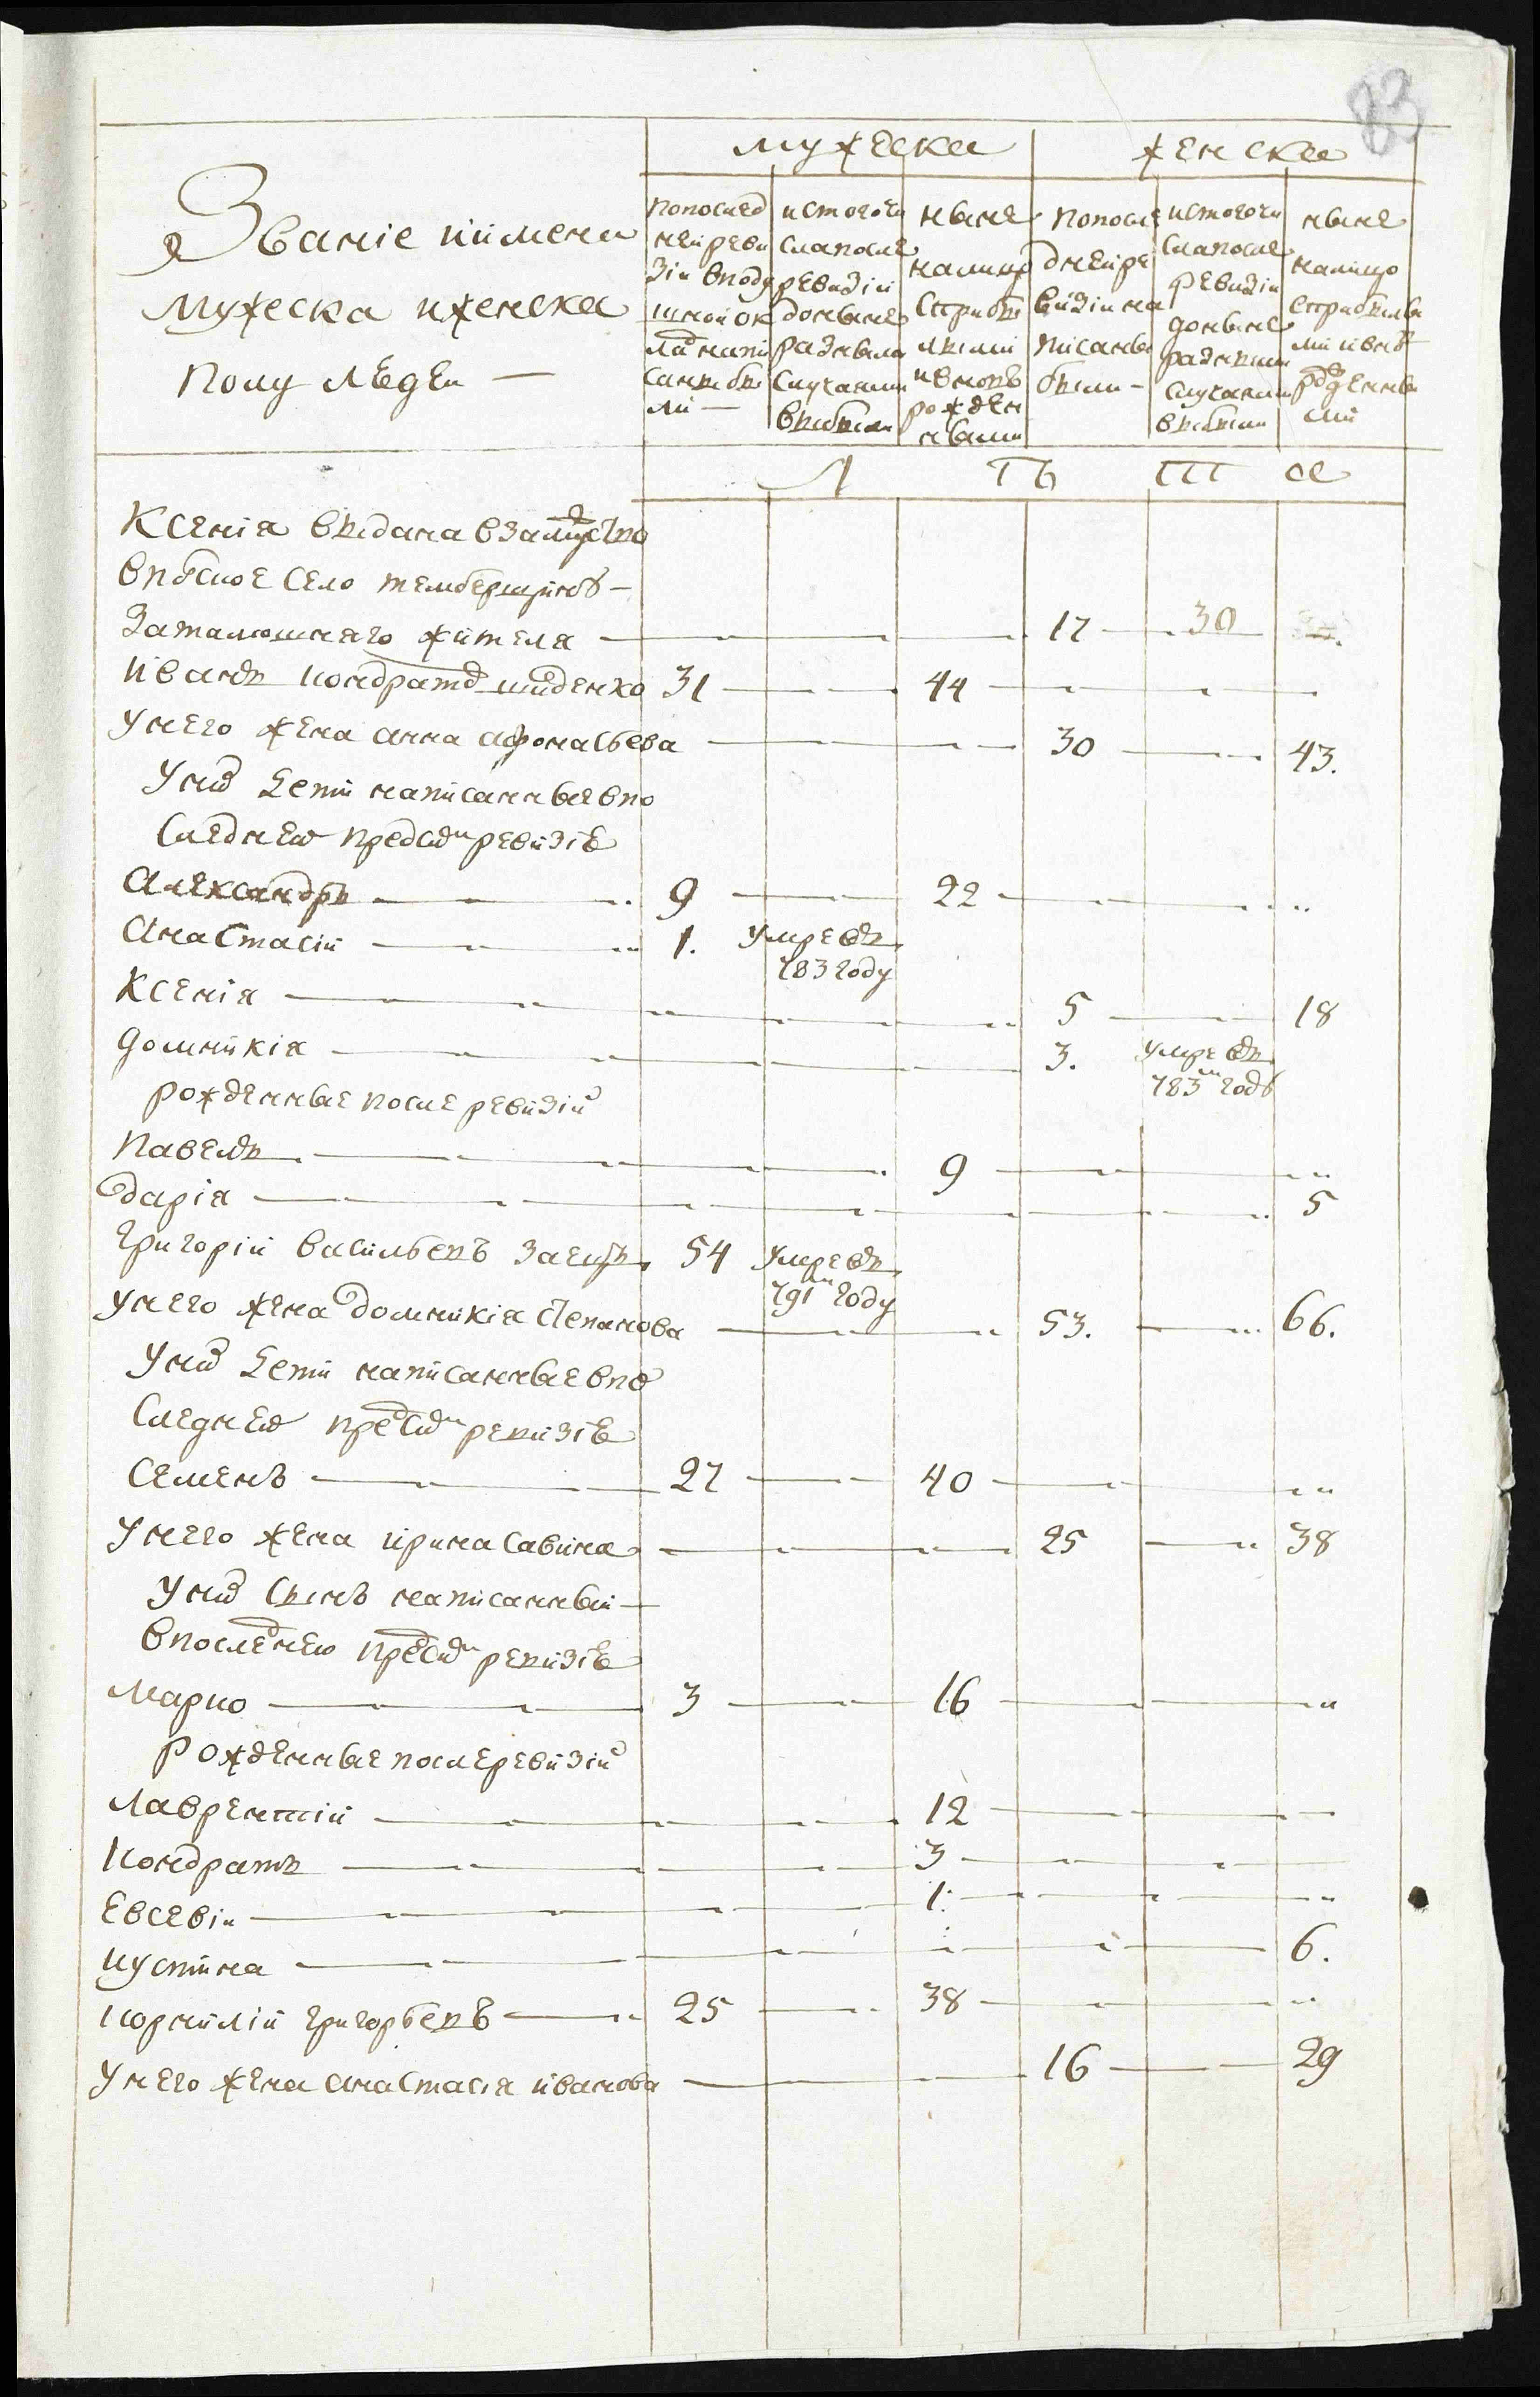 83
мужеска женска
Званіе и имена
мужеска и женска
полу людей —
попослед
ней реви
зіи вподу
шной ок
ладъ напи
саны бы
ли —
истого чи
сла после
ревизіи
до ныне
разными
случаями
выбыли
ныне
на лицо
сприбы
лыми
и вновь
рожден
ными
попосле
дней ре
визіи на
писаны
были —
истого чи
сла после
ревизіи
до ныне
разными
случаями
выбыли
ныне
на лицо
сприбылы
ми и вновь
рожденны
ми
Л Ѣ Т А
Ксенія выдана взамужство
село
жителя 17 30
Иванъ Кондратов 31 44
У него жена Анна Афонасьева 30 43.
У них дети написанные впо
следней пред сим ревизіе
Александръ 9 22
Анастасій 1. Умре въ
783 году
Ксенія 5 18
Домникія 3. Умре въ
783м годе
рожденные после ревизіи
Павелъ 9
Дарія 5
Григорій Васильевъ Заецъ 54 Умре въ
791м году
У него жена Домникія Степанова 53. 66.
У них дети написанные впо
следней пред сим ревизіе
Семенъ 27 40
У него жена Ирина Савина 25 38
У них сынъ написанный —
впоследней пред сим ревизіе
Марко 3 16
Рожденные после ревизіи
Лаврентій 12
Кондратъ 3
Евсевіи 1.
Иустина 6.
Корнилій Григорьевъ 25 38
У него жена Анастасія Иванова 16 29